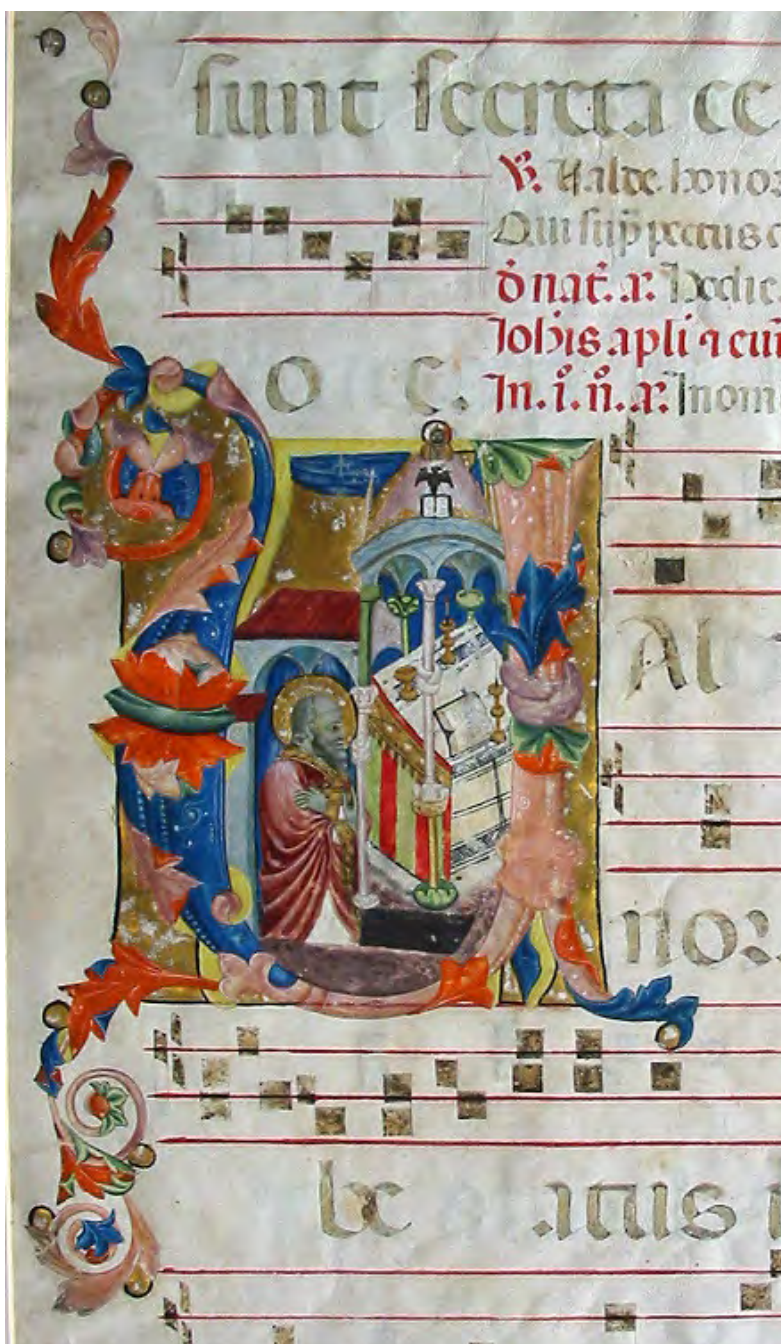 sunt secreta ce
℟. Valde honor
Qui sup pectus
nat̄. Hodie
Iohis apli ⁊ eui
In. i. n̄. a. In om
o c.
AL
nor
be atus